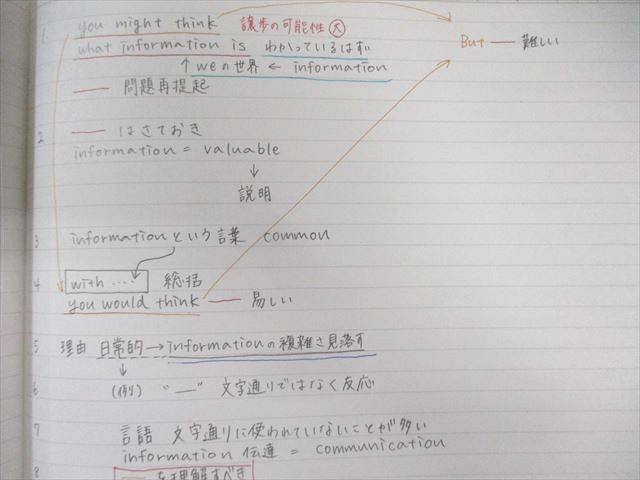 1 you might think 譲歩の可能性 大
But — 難しい
what information is わかっているはず
↑ weの世界 ← information
— 問題再提起
2 — はさておき
information = valuable
↓
説明
3 informationという言葉 common
4 with ‥‥ 総括
you would think — 易しい
5 理由 日常的→informationの複雑さ見落す
↓
6 (例) "—" 文字通りではなく反応
7 言語 文字通りに使われていないことが多い
information 伝達 = communication
8 — を理解すべき